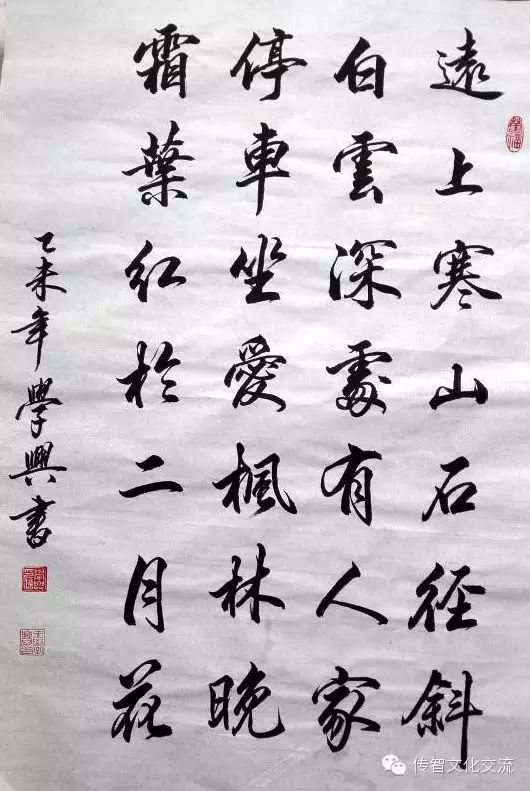 遠上寒山石徑斜
白雲深處有人家
停車坐愛楓林晚
霜葉紅於二月花
乙未年學興書
传智文化交流